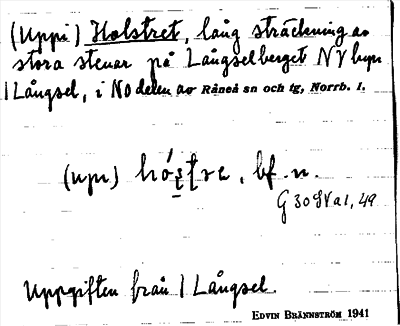 (Uppi) Holstret, lång sträckning av
stora stenar på Långselberget NV byn
1 Långsel, i NO delen av Råneå sn och tg, Norrb. l.
(upi)
bf. n.
G 30 SV a 1, 49
Uppgiften från 1 Långsel.
EDVIN BRÄNNSTRÖM 1941